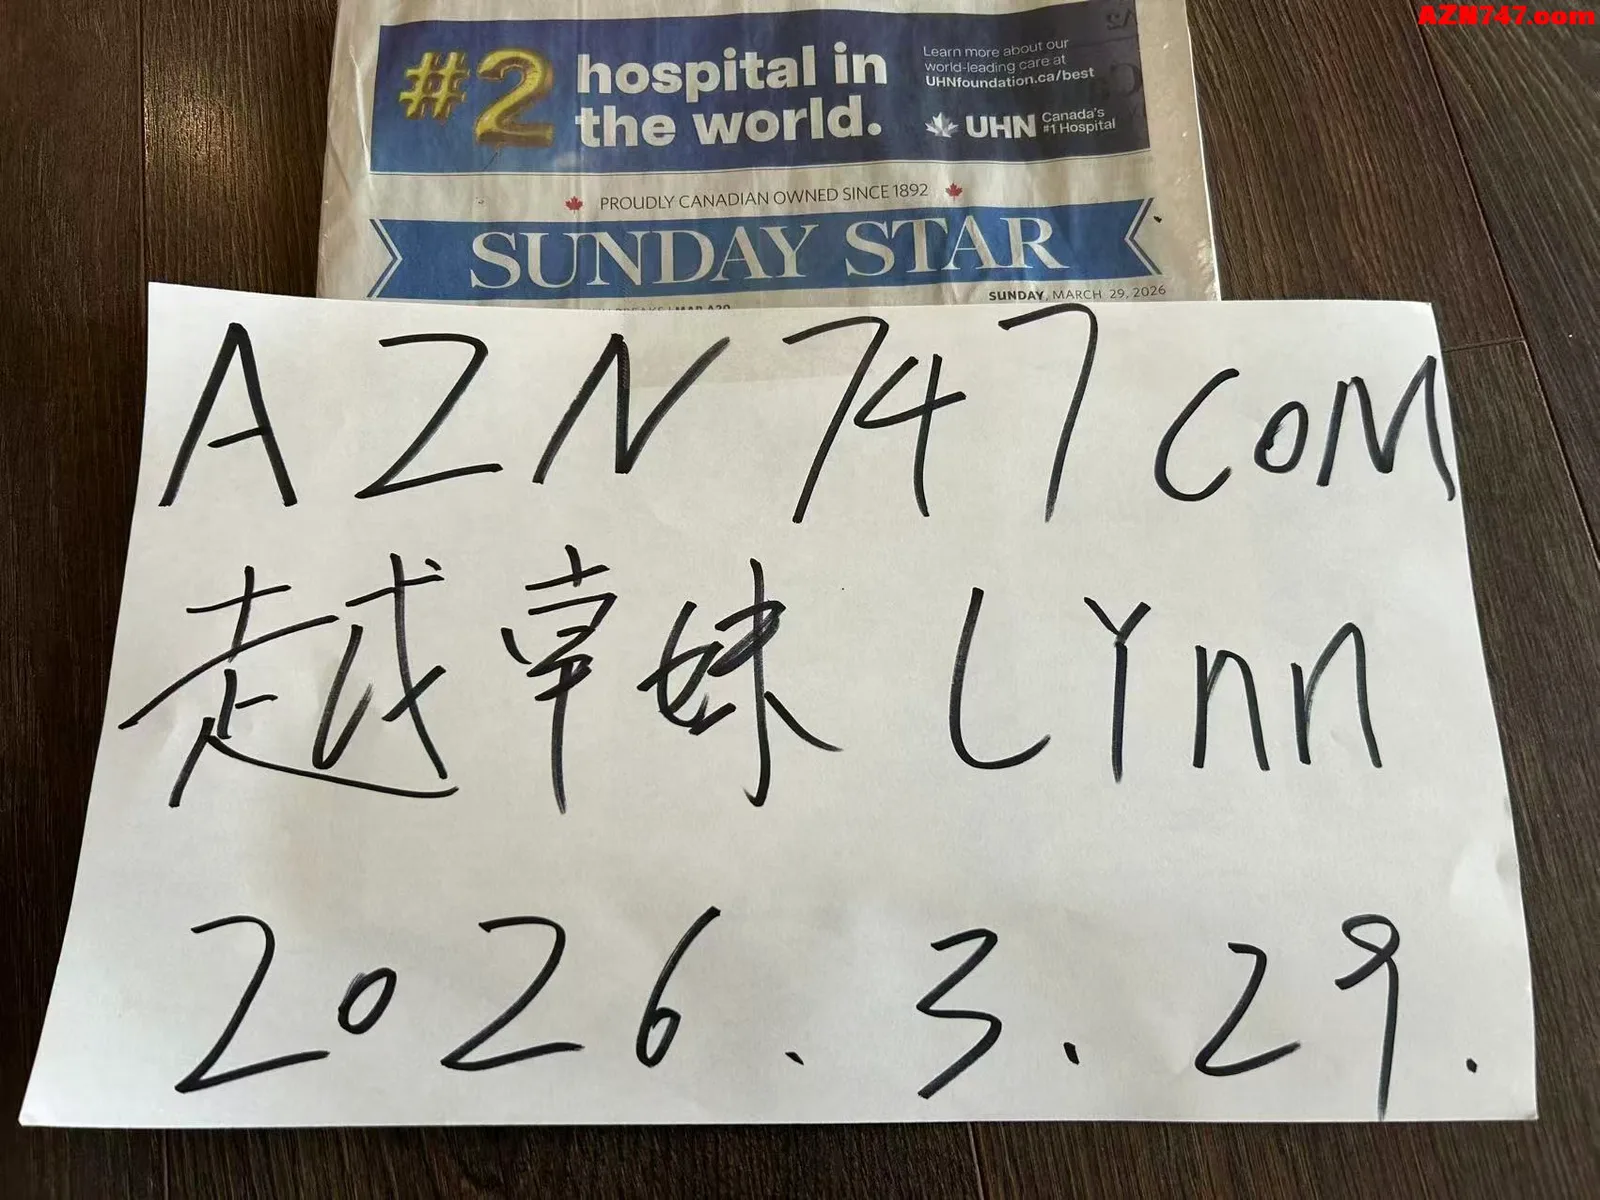 AZN747.com
#2 hospital in
the world.
Learn more about our
world-leading care at
UHNfoundation.ca/best
UHN Canada's
#1 Hospital
PROUDLY CANADIAN OWNED SINCE 1892
SUNDAY STAR
SUNDAY, MARCH 29, 2026
AZN747COM
越章妹 LYnn
2026.3.29.